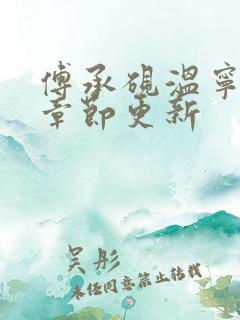 傅承砚温宁
章节更新
吴彤
未经同意禁止转载